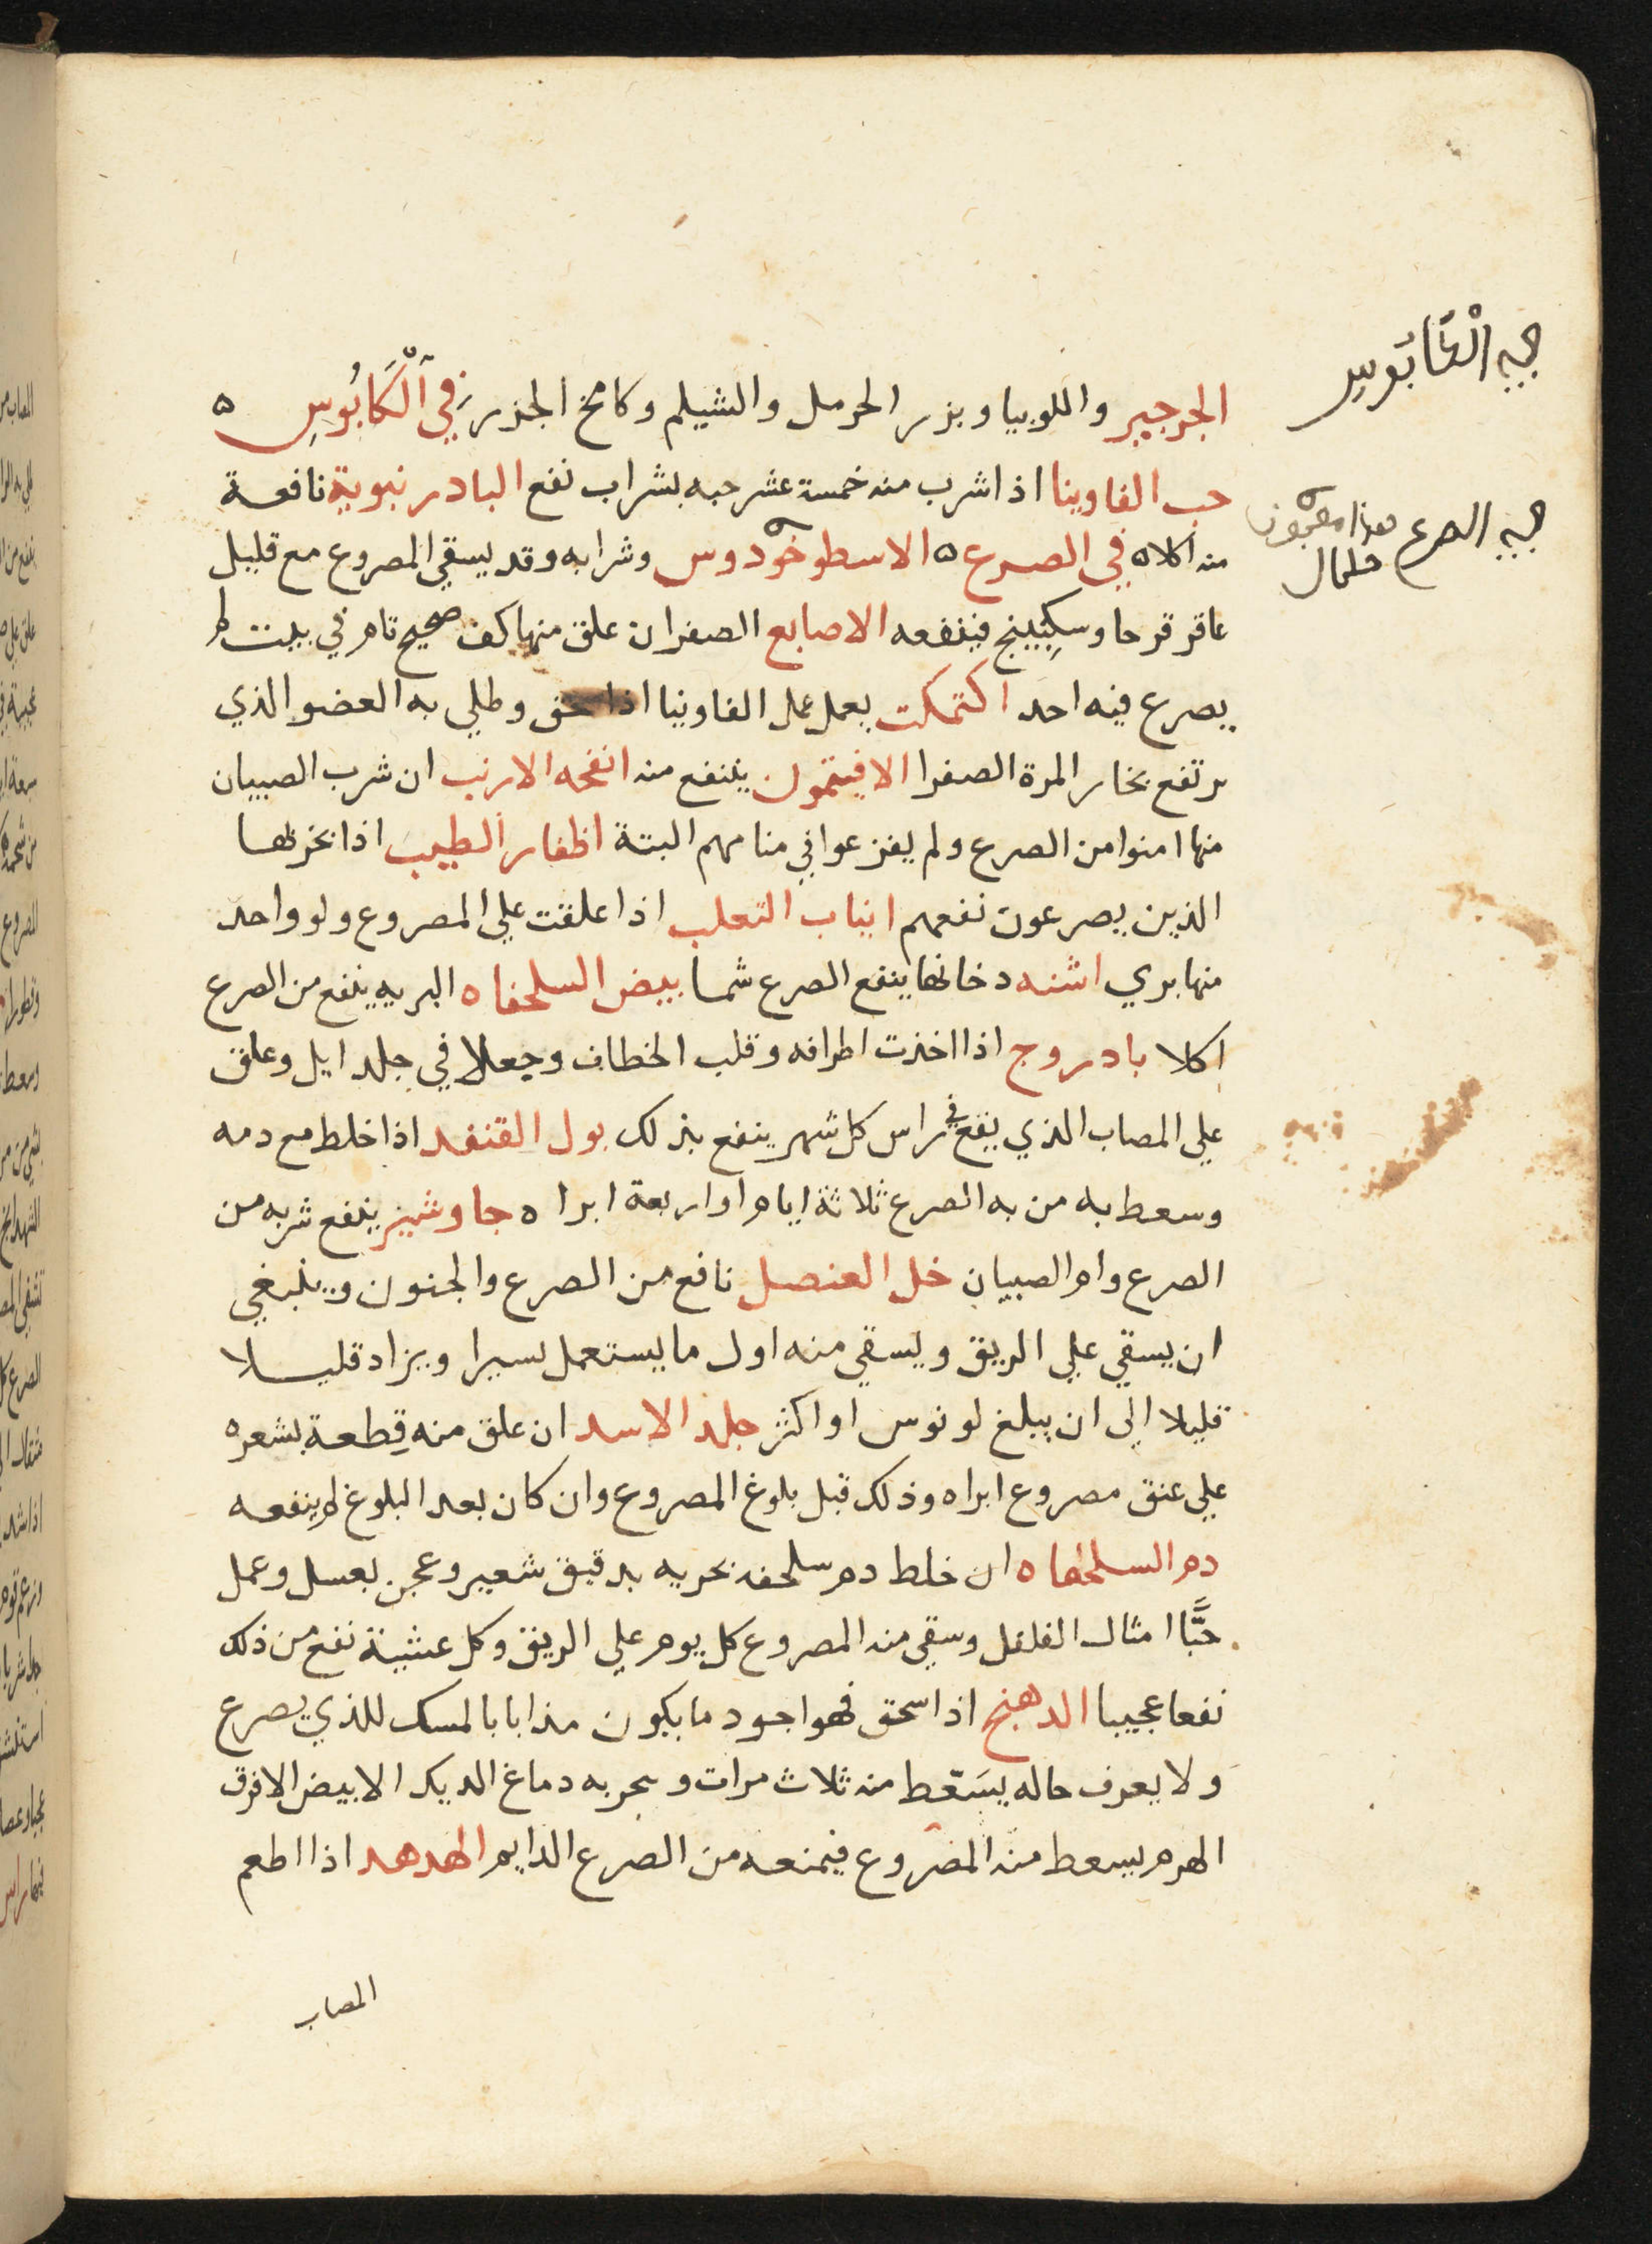 الجرجير واللوبيا وبزر الحرمل والشيلم وكامخ الجزر في اَلْكَابُوسِ ه
حب الفاوينا اذا شرب منه خمسة عشر حبه بشراب نفع البادرنبوية نافعة
منه اكلا ه في الصرع ه الاسطوخودوس وشرابه وقد يسقي المصروع مع قليل
عاقر قرحا وسكبينج فينفعه الاصابع الصفر ان علق منها كف صحيح تام في بيت لم
يصرع فيه احد اكتمكت يعمل عمل الفاوينا اذا سحق وطلي به العضو الذي
يرتفع بخار المرة الصفرا الافيتمون ينفع منه انفحه الارنب ان شرب الصبيان
منها امنوا من الصرع ولم يفزعوا في منامهم البتة اظفار الطيب اذا بخر بها
الذين يصرعون نفعهم انياب الثعلب اذا علقت علي المصروع ولو واحد
منها بري اشنه دخانها ينفع الصرع شما بيض السلحفاه البريه ينفع من الصرع
اكلا بادروج اذا اخذت اطرافه وقلب الخطاف وجعلا في جلد ايل وعلق
علي المصاب الذي يقع في راس كل شهر ينفع بذلك بول القنفد اذا خلط مع دمه
وسعط به من به الصرع ثلاثة ايام او اربعة ابرا ه جاوشير ينفع شربه من
الصرع وام الصبيان خل العنصل نافع من الصرع والجنون وينبغي
ان يسقي علي الريق ويسقي منه اول ما يستعمل يسيرا ويزاد قليلا
قليلا الي ان يبلغ لونوس او اكثر جلد الاسد ان علق منه قطعة بشعره
علي عنق مصروع ابراه وذلك قبل بلوغ المصروع وان كان بعد البلوغ لم ينفعه
دم السلحفاه ان خلط دم سلحفه بحريه بدقيق شعير وعجن بعسل وعمل
حبًّا امثال الفلفل وسقي منه المصروع كل يوم علي الريق وكل عشية نفع من ذلك
نفعا عجيبا الدهنج اذا سحق فهو اجود ما يكون مذابا بالمسك للذي يصرع
ولا يعرف حاله يسعط منه ثلاث مرات وبخر به دماغ الديك الابيض الافرق
الهرم يسعط منه المصروع فيمنعه من الصرع الدايم الهدهد اذا اطعم
المصاب
الصرع